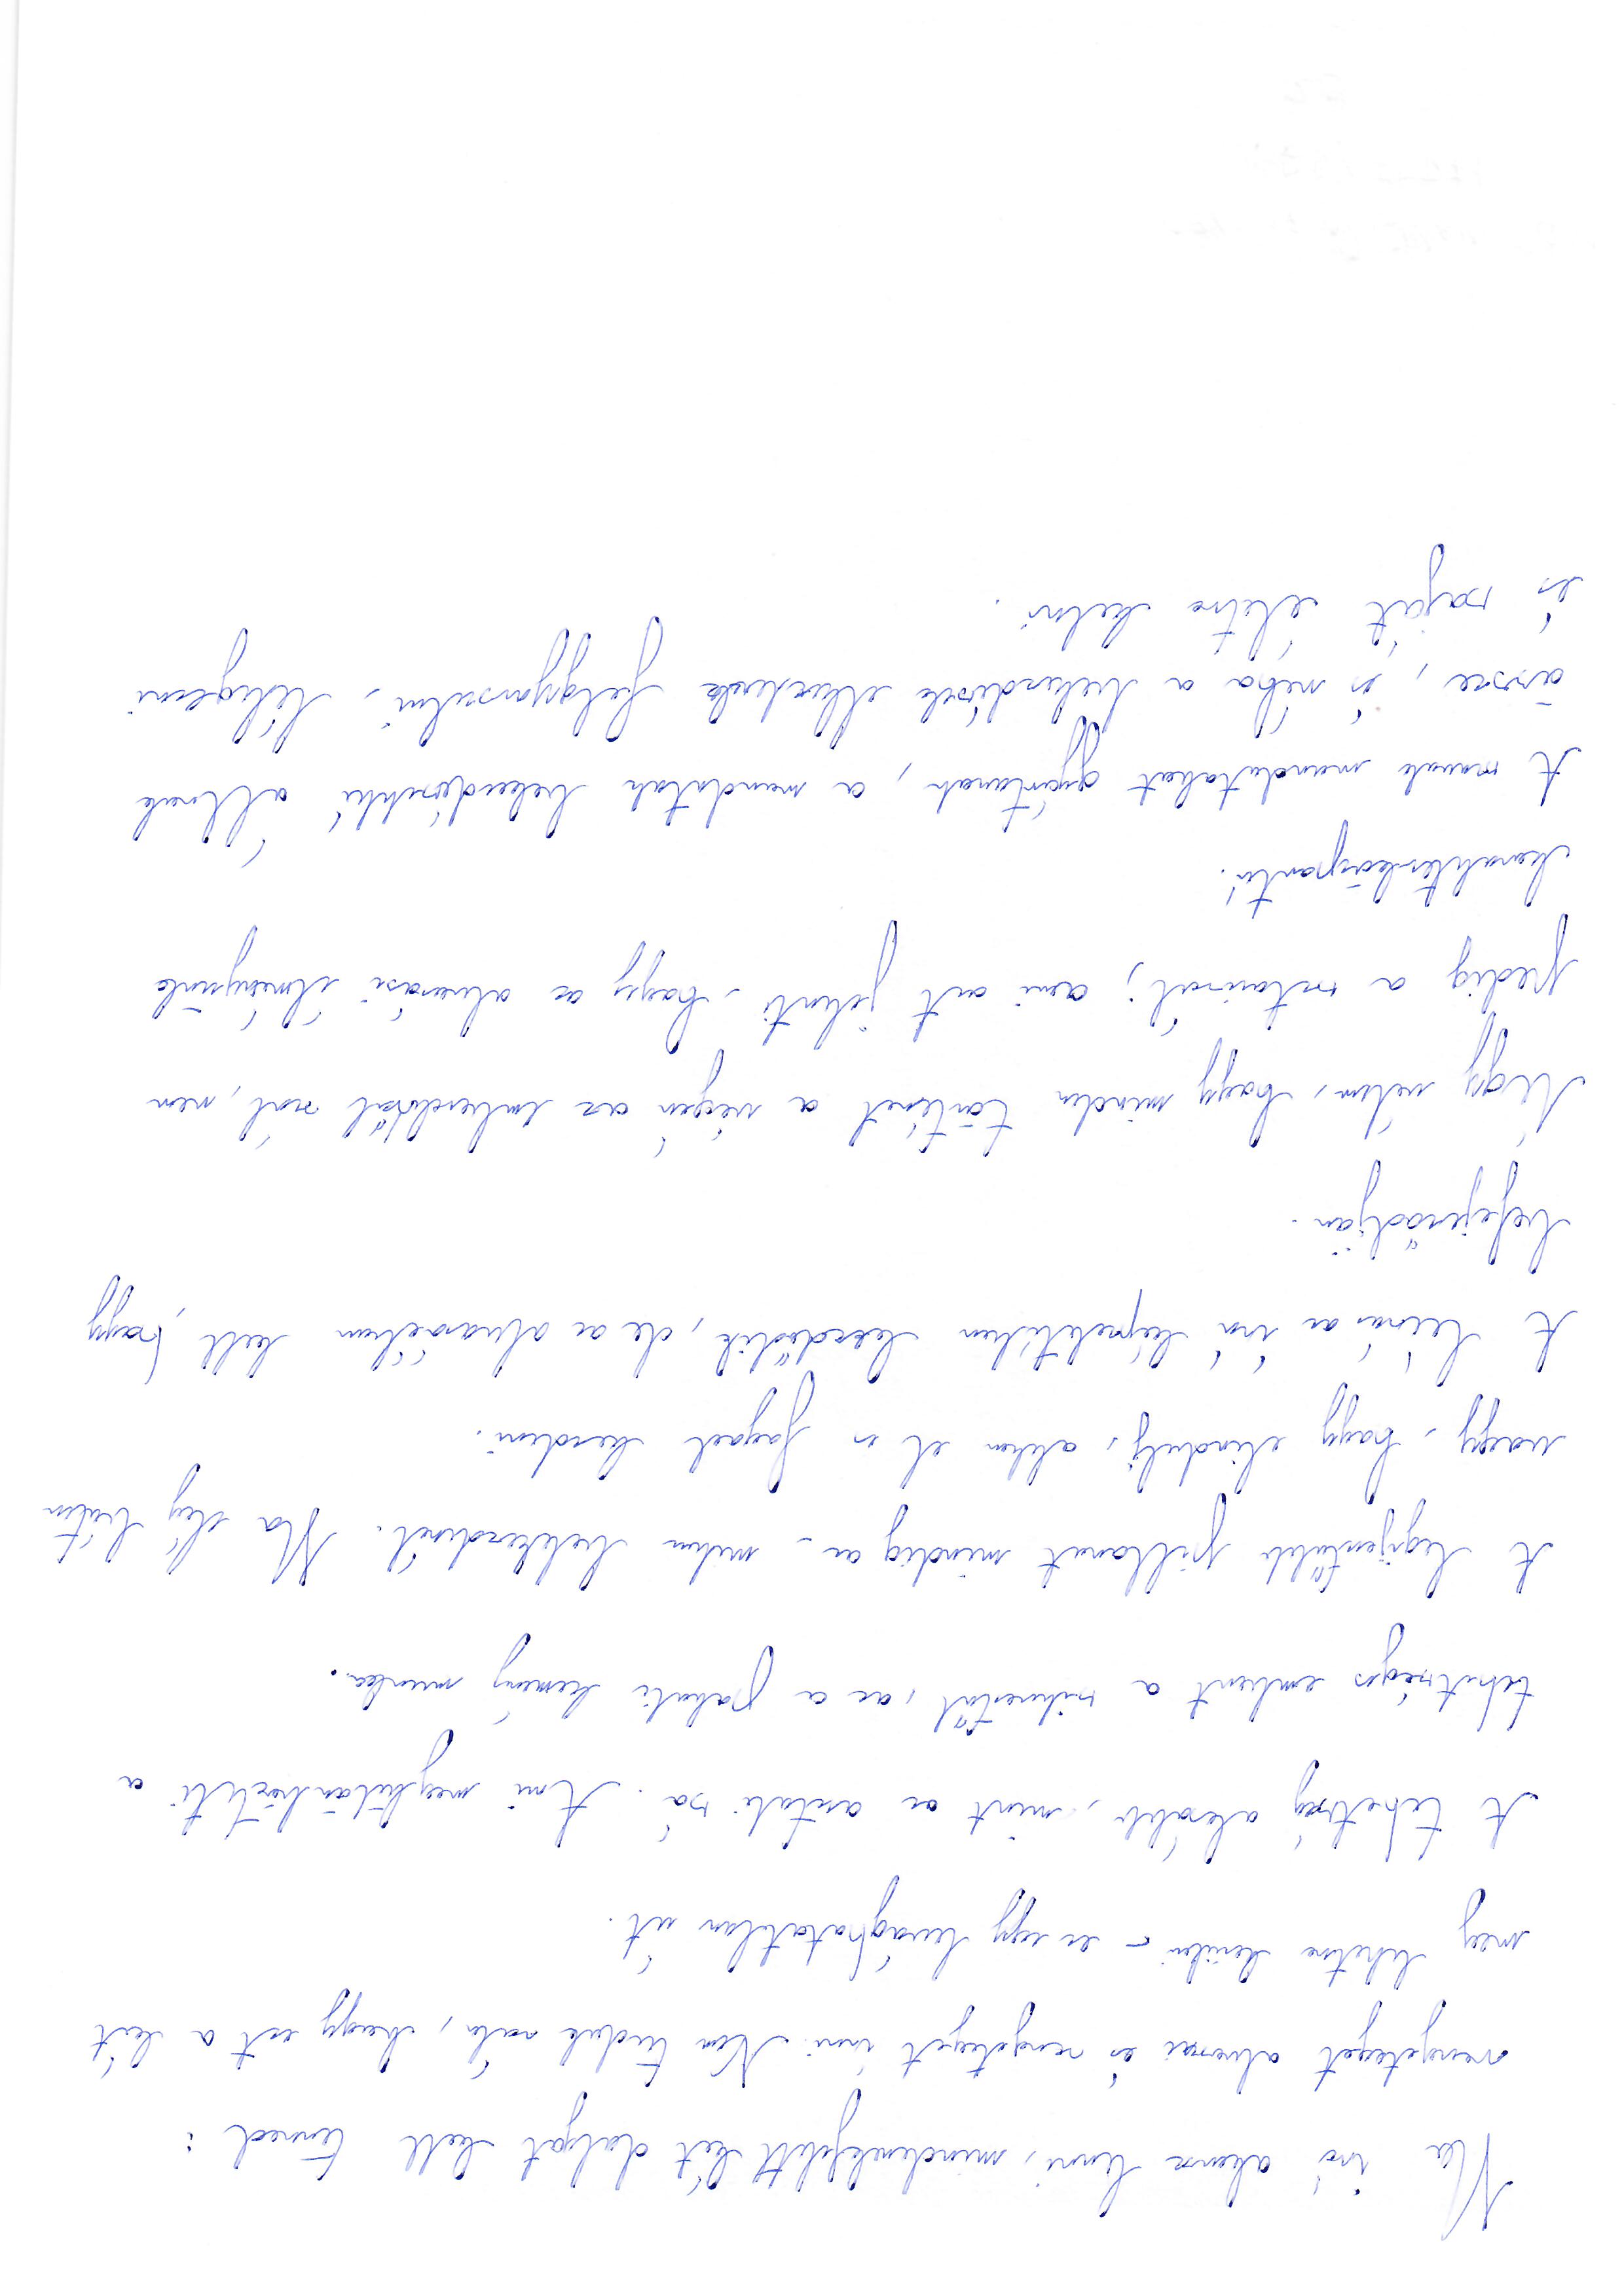 Ha író akarsz lenni, mindenekfelett két dolgot kell tenned:
rengeteget olvasni és rengeteget írni. Nem tudok róla, hogy ezt a két
meg lehetne kerülni - ez egy levághatatlan út.
A tehetség olcsóbb, mint az asztali só. Ami megkülönbözteti a
tehetséges embert a sikerestől, az a pokoli kemény munka.
A legijesztőbb pillanat mindig az, mikor belekezdenél. Ha elég bátor
vagy, hogy elindulj, akkor el is fogod kezdeni.
A leírás az író képzeletében kezdődik, de az olvasóéban kell, hogy
befejeződjön.
Úgy vélem, hogy minden történet a végén az emberekről szól, nem
pedig a sztoriról; ami azt jelenti, hogy az olvasási élményünk
karakterközpontú.
A szavak mondatokat gyártanak, a mondatok bekezdésekké állnak
össze, és néha a bekezdések elkezdenek felgyorsulni, lélegezni
és saját életre kelni.